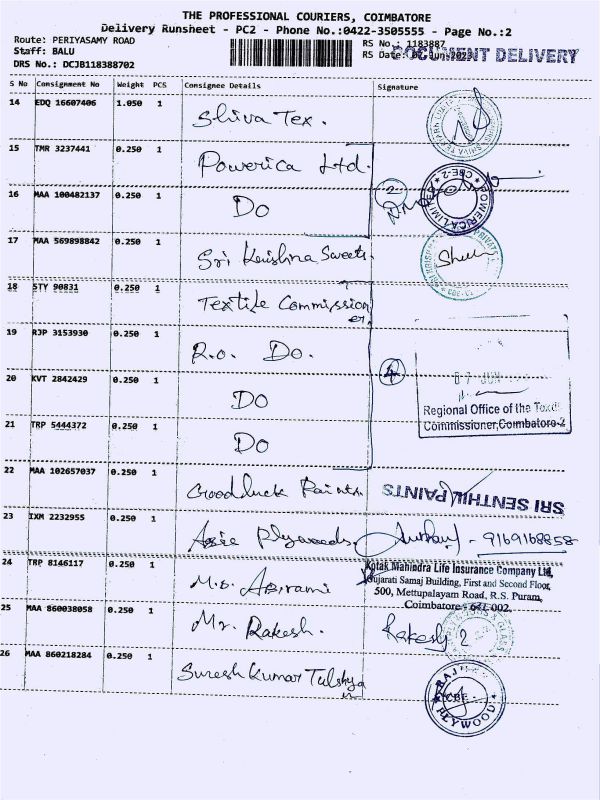 THE PROFESSIONAL COURIERS, COIMBATORE
Delivery Runsheet - PC2 - Phone No.:0422-3505555 - Page No.:2
Route: PERIYASAMY ROAD
RS No.: 1183887
Staff: BALU
RS Date: 07-Jun-2023
DOCUMENT DELIVERY
DRS No.: DCJB118388702
S No Consignment No Weight PCS Consignee Details Signature
14 EDQ 16607406 1.050 1 Shiva Tex.
15 TMR 3237441 0.250 1 Powerica Ltd.
16 MAA 100482137 0.250 1 Do 2
POWERICA LIMITED CBE-2
17 MAA 569898842 0.250 1 Sri Krishna Sweets.
18 STY 90831 0.250 1 Textile Commission
er,
19 RJP 3153930 0.250 1 R.o. Do.
07 JUN
20 KVT 2842429 0.250 1 Do 4
Regional Office of the
21 TRP 5444372 0.250 1 Do
Commissioner,Coimbatore-2
22 MAA 102657037 0.250 1 Goodluck Paints.
SRI SENTHIL PAINTS
23 IXM 2232955 0.250 1 Asie Plywoods, - 9169168858
24 TRP 8146117 0.250 1 M.s. Abirami
Kotak Mahindra Life Insurance Company Ltd,
Gujarati Samaj Building, First and Second Floor,
500, Mettupalayam Road, R.S. Puram,
Coimbatore - 641 002.
25 MAA 860038058 0.250 1 Mr. Rakesh. Rakesh 2
26 MAA 860218284 0.250 1 Suresh Kumar Tulshya
n
PLYWOOD